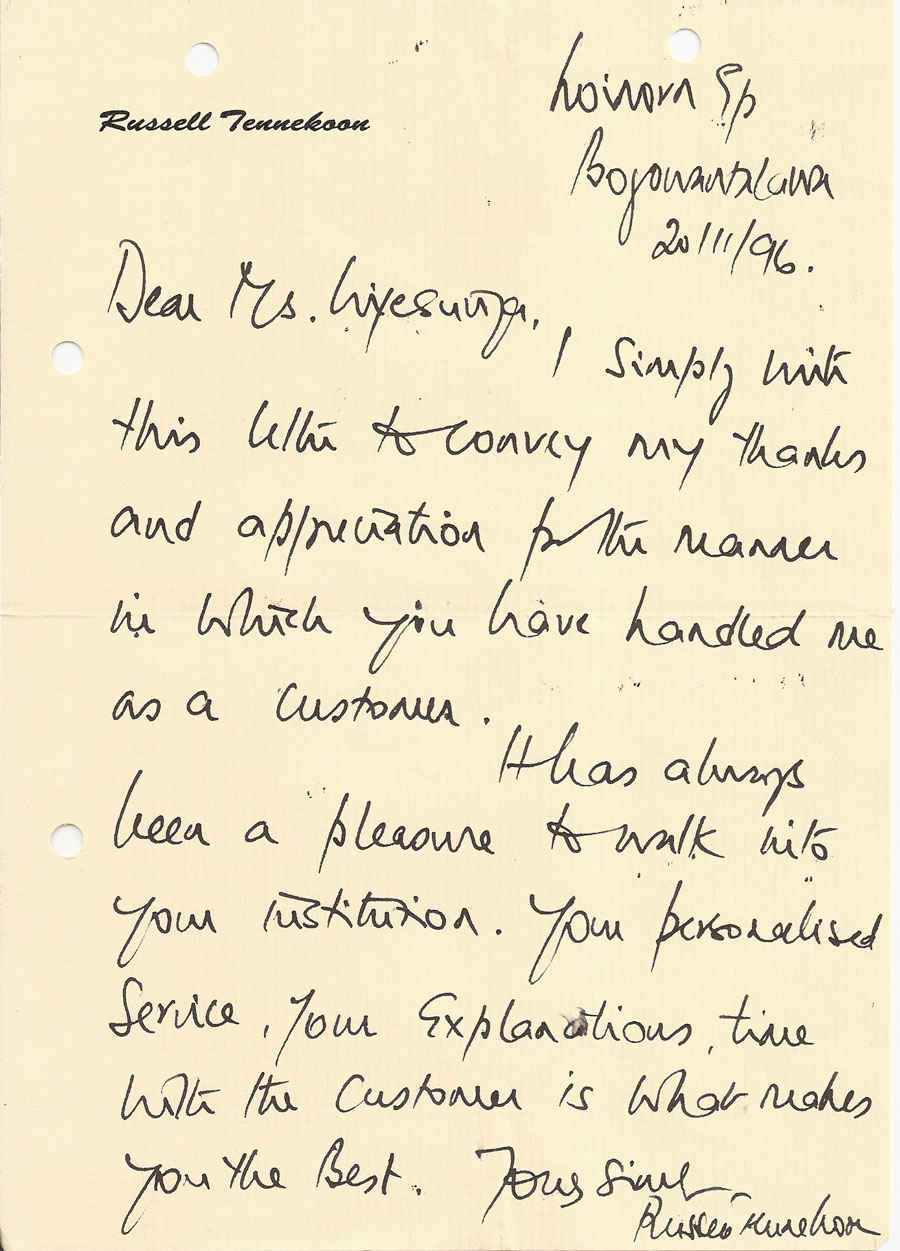 Russell Tennekoon
Loinorn Gp
Bogowantalawa
20/11/96.
Dear Ms. Wijesuriya,
I simply write
this letter to convey my thanks
and appreciation for the manner
in which you have handled me
as a customer.
It has always
been a pleasure to walk into
your institution. Your personalised
Service, your Explanations, time
with the Customer is what makes
you the Best. Yours Sincerely
Russell Tennekoon